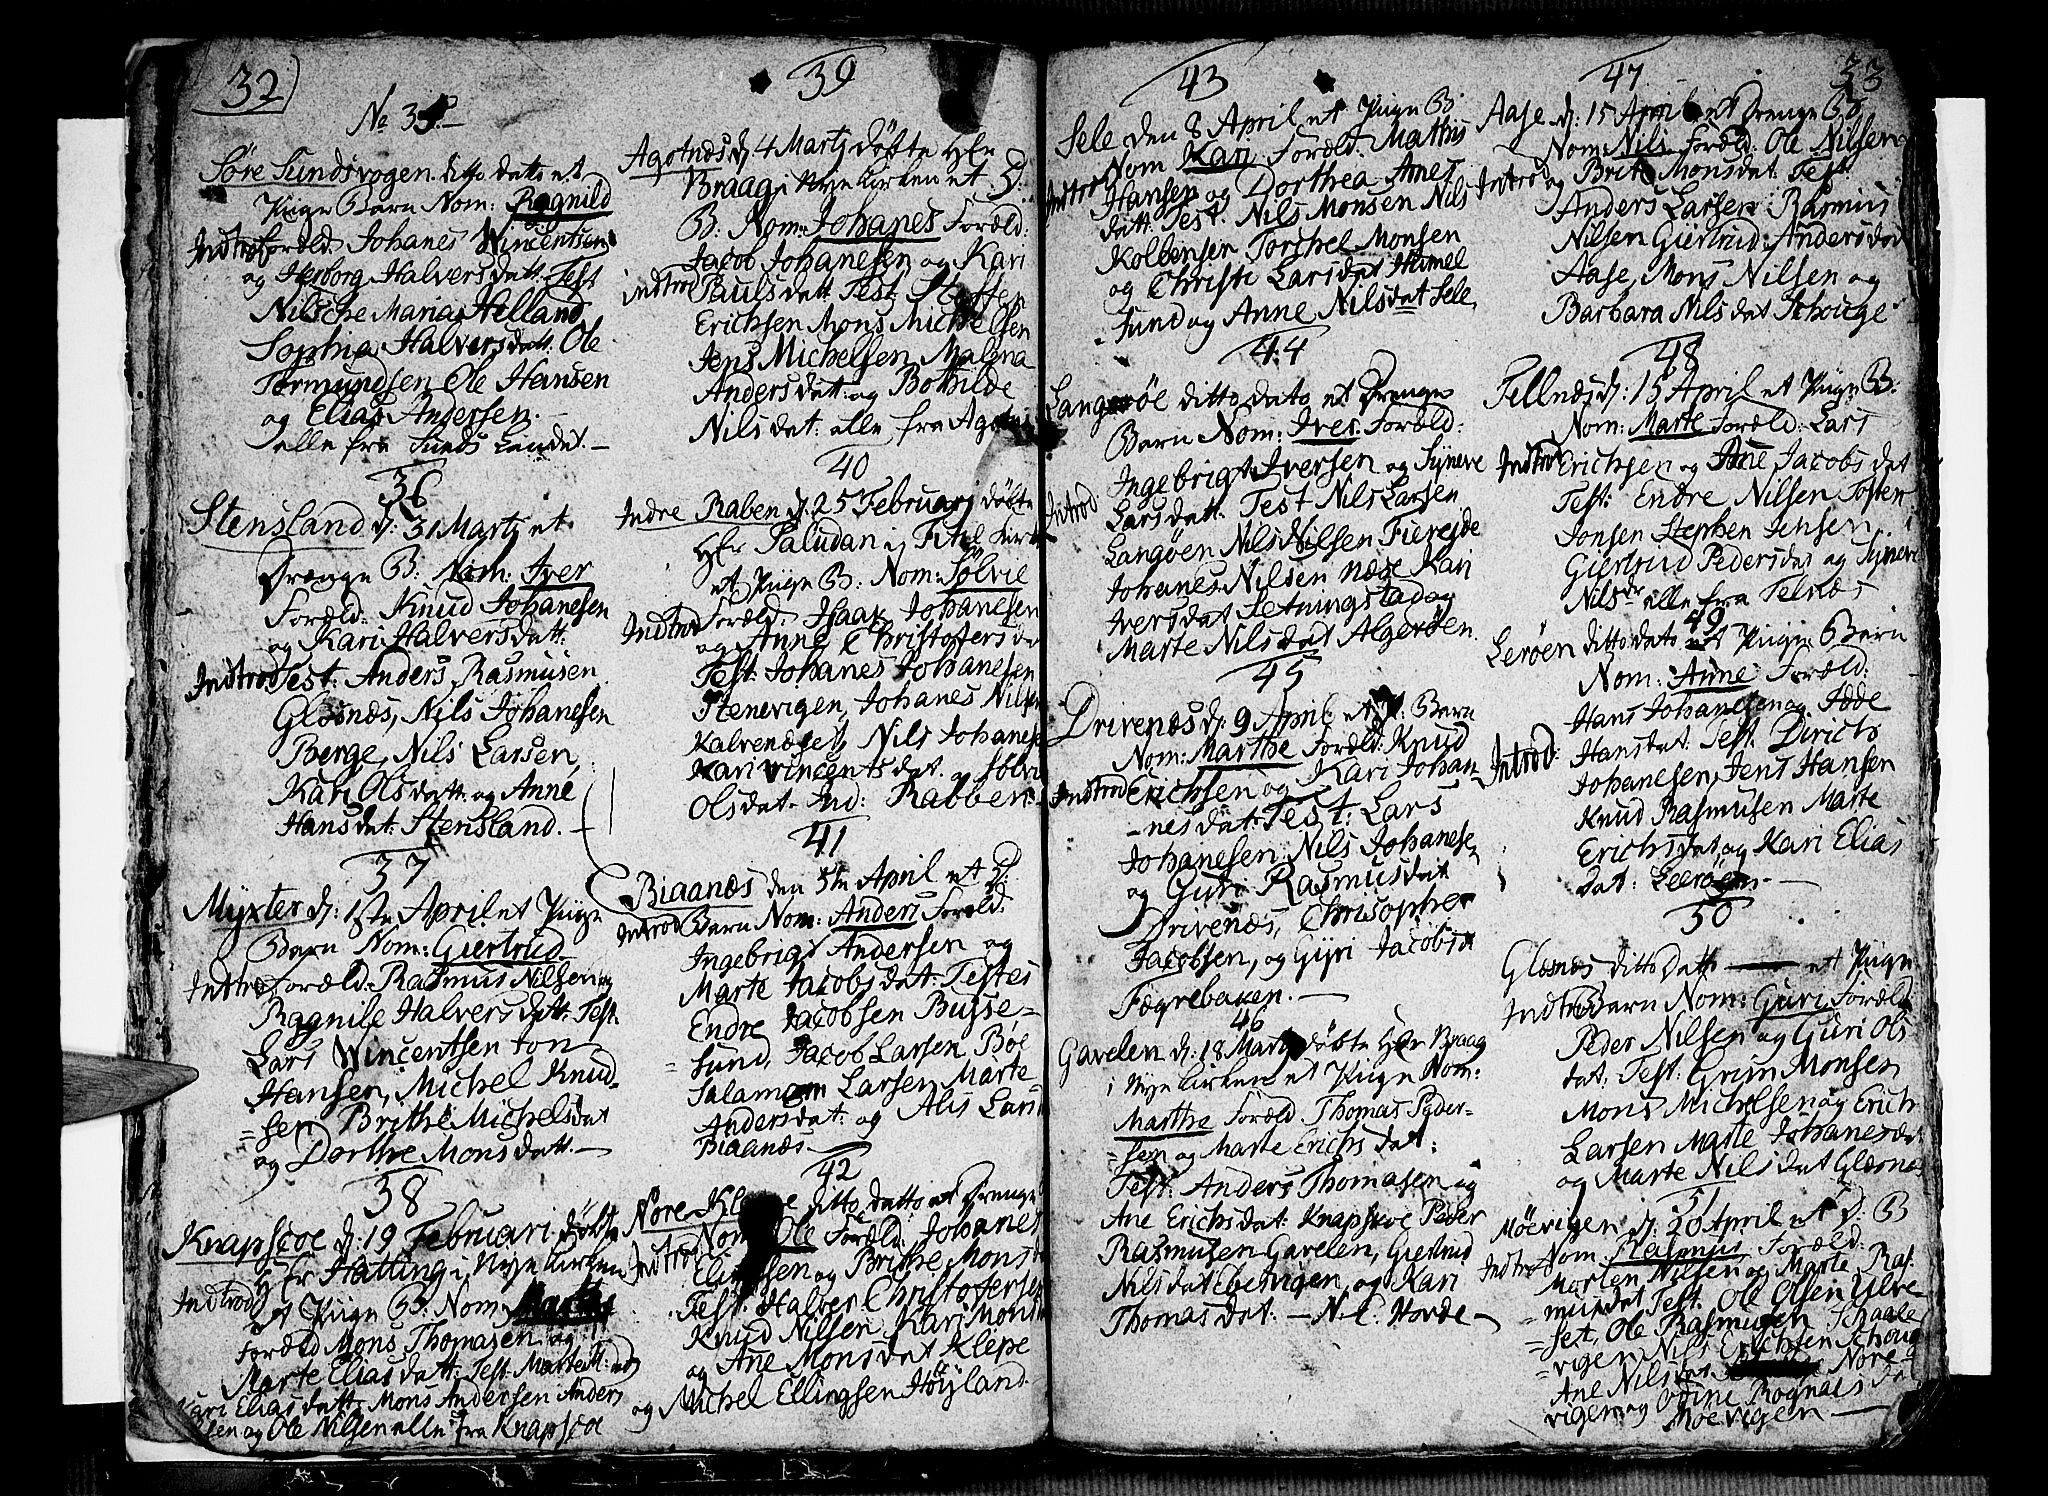 32
No 35.
Søre Sundsvogen ditto datto et
Piige Barn Nom: Ragnild
Indtro Foræld: Johanes Wincentsen
og Herborg Halversdatt: Test
Nilsche Maria Helland
Sophia Halversdatt: Ole
Tormundsen Ole Hansen
og Elias Andersen. —
alle fra Sunds Landet. —
36
Stensland d: 31 Martj et
Drænge B: Nom: Iver
Foræld: Knud Johanesen
og Kari Halversdatt:
Indtrod Test: Anders Rasmusen
Glesnæs, Nils Johanesen
Berge, Nils Larsen,
Kari Olsdatt: og Anne
Hansdat: Stensland. —
37
Myxter d: 1ste April et Piige
Barn Nom: Giertrud
Indtro Foræld: Rasmus Nilsen og
Ragnile Halversdatt: Test.
Lars Wincentsen Jon
Hansen, Michel Knud-
=sen Brithe Michelsdat
og Dorthe Monsdatt. —
38
Knapscoe d: 19 Februari døbte
Hfr Hatting i Nye Kirken
Indtrod et Piige B: Nom: Marthe
Foræld Mons Thomasen og
Marte Eliasdatt: Test: Marte
Kari Eliasdatt: Mons Andersen Anders
og Ole Nilsen alle fra Knapscoe
39
Agotnæs d: 4 Martj døbte Hfr
Braag i Nye Kirken et D:
B: Nom: Johanes Foræld:
Jacob Johanesen og Kari
indtrod Paulsdatt: Test: Steffen
Erichsen Mons Michelsen
Jens Michelsen, Malena
Andersdat: og Bothilde
Nilsdat: alle fra Agotnæs
40
Indre Raben d: 25 Februarj døbte
Hfr Paludan i Fitel Kirke
et Piige B: Nom: Sølvie
Indtrod Foræld: Isaax Johanesen
og Anne Christofersda
Test: Johanes Johanesen
Stenevigen, Johanes Nilsen
Kalvenæset, Nils Johanese
Kari vincentsdat. og Sølvi
Olsdat. Ind: Rabben.
41
Biaanæs den 5te April et D:
Introd Barn Nom: Anders Foræld:
Ingebrigt Andersen og
Marte Jacobsdat: Testes
Endre Jacobsen Busse=
=sund, Jacob Larsen, Bøe
Salamon Larsen, Marte
Andersdat: og Alis Lars
Biaanæs —
42
Nore Kleppe ditto datto et Drenge
Nom: Ole Foræld: Johanes
Indtrod Ellingsen og Brithe Monsda
Test: Halver Christofersen
Knud Nilsen, Kari Mons
og Ane Monsdat Klepe
og Michel Ellingsen Høyland.
43
Sele den 8 April et Piige B:
Nom: Kari Foræld: Mathis
Indtro Hansen og Dorthea Anes
datt: Test: Nils Monsen Nils
Kolbensen Torchel Monsen
og Christi Larsdat Humel
Sund og Anne Nilsdat Sele,
44
Langeøe ditto dato et Drenge
Barn Nom: Iver: Foræld:
Ingebrigt Iversen og Syneve
Introd Larsdatt: Test Nils Larsen
Langøen Nils Nilsen Fierejde
Johanes Nilsen næse Kari
Iversdat Setningstad og
Marte Nilsdat Algerøen.
45
Drivenæs d: 9 April et P: Barn
Nom: Marthe Foræld: Knud
Indtrod Erichsen og Kari Johan-
-nesdat: Test: Lars
Johanesen, Nils Johanese,
og Guri Rasmusdat
Drivenæs, Chrisopher
Jacobsen, og Gyri Jacobsd
Fægrebaken. —
46
Gavelen d: 18 Martj døbte Hfr Braag
i Nye Kirken et Piige Nom:
Marthe Foræld. Thomas Peder-
=sen og Marte Erichsdat:
Test: Anders Thomasen og
Ane Erichsdat: Knapskoe Peder
Rasmusen Gavelen, Giertrud
Nilsdat Ebbevigen, og Kari
Thomasdat: — N: C. Horde —
47
33
Aase d: 15 April et Drenge B:
Nom: Nils Foræld: Ole Nilsen
Introd og Brite Monsdat: Test
Anders Larsen Rasmus
Nilsen Giertrud Andersdat
Aase, Mons Nilsen og
Barbara Nilsdat Schouge
48
Tellnæs d: 15 April et Piige B:
Nom: Marte Foræld: Lars
Indtrod Erichsen og Ane Jacobsdat
Test: Endre Nilsen Tosten
Jonsen Stephen Jensen
Giertrud Pedersdat og Syneve
Nilsdr alle fra Telnæs
49
Lerøen ditto dato et Piige Barn
Nom: Anne Foræld:
Hans Johanesen og Idde
Introd: Hansdat: Test. Dirichs
Johanesen, Jens Hansen
Knud Rasmusen Marte
Erichsdat og Kari Elias
dat: Leerøen. —
50
Glesnæs ditto datto — et Piige
Indtro Barn Nom: Guri Foræld
Peder Nilsen og Guri Ols
dat: Test: Grim Monsen
Mons Michelsen og Erich
Larsen Marte Johanesdat
og Marte Nilsdat Glæsnæ
51
Møevigen d: 20 April et D: B
Indtro Nom: Rasmus Foræld:
Morten Nilsen og Marte Ras-
musdat Test: Ole Olsen Ulve
=set, Ole Rasmusen Schaale
vigen Nils Erichsen Schoug
Ane Nilsdat Nore-
vigen og Ragnalsdat
Møevigen —